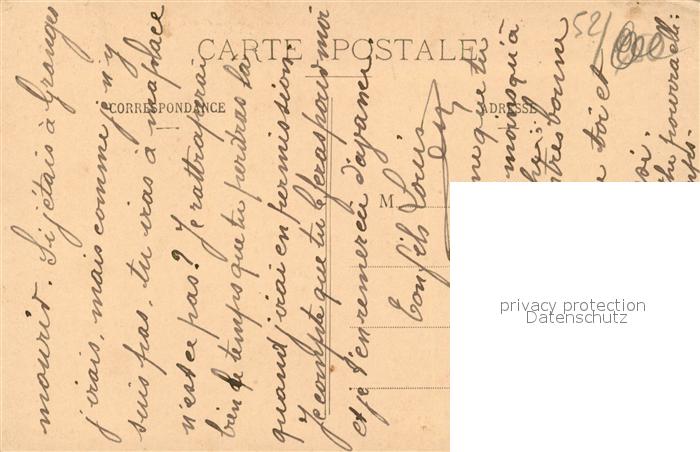 CARTE POSTALE
CORRESPONDANCE
ADRESSE
M
52
mourir. Si j'étais à Granges
j'irais, mais comme je n'y
suis pas, tu iras à ma place
n'est ce pas? Je rattraperai
bien le temps que tu perdras la
quand j'irai en permission.
Je compte que tu le feras pour moi
et je t'en remercie d'avance.
Ton fils Louis
me que tu
moins qu'à
très bonne
toi et
privacy protection
Datenschutz